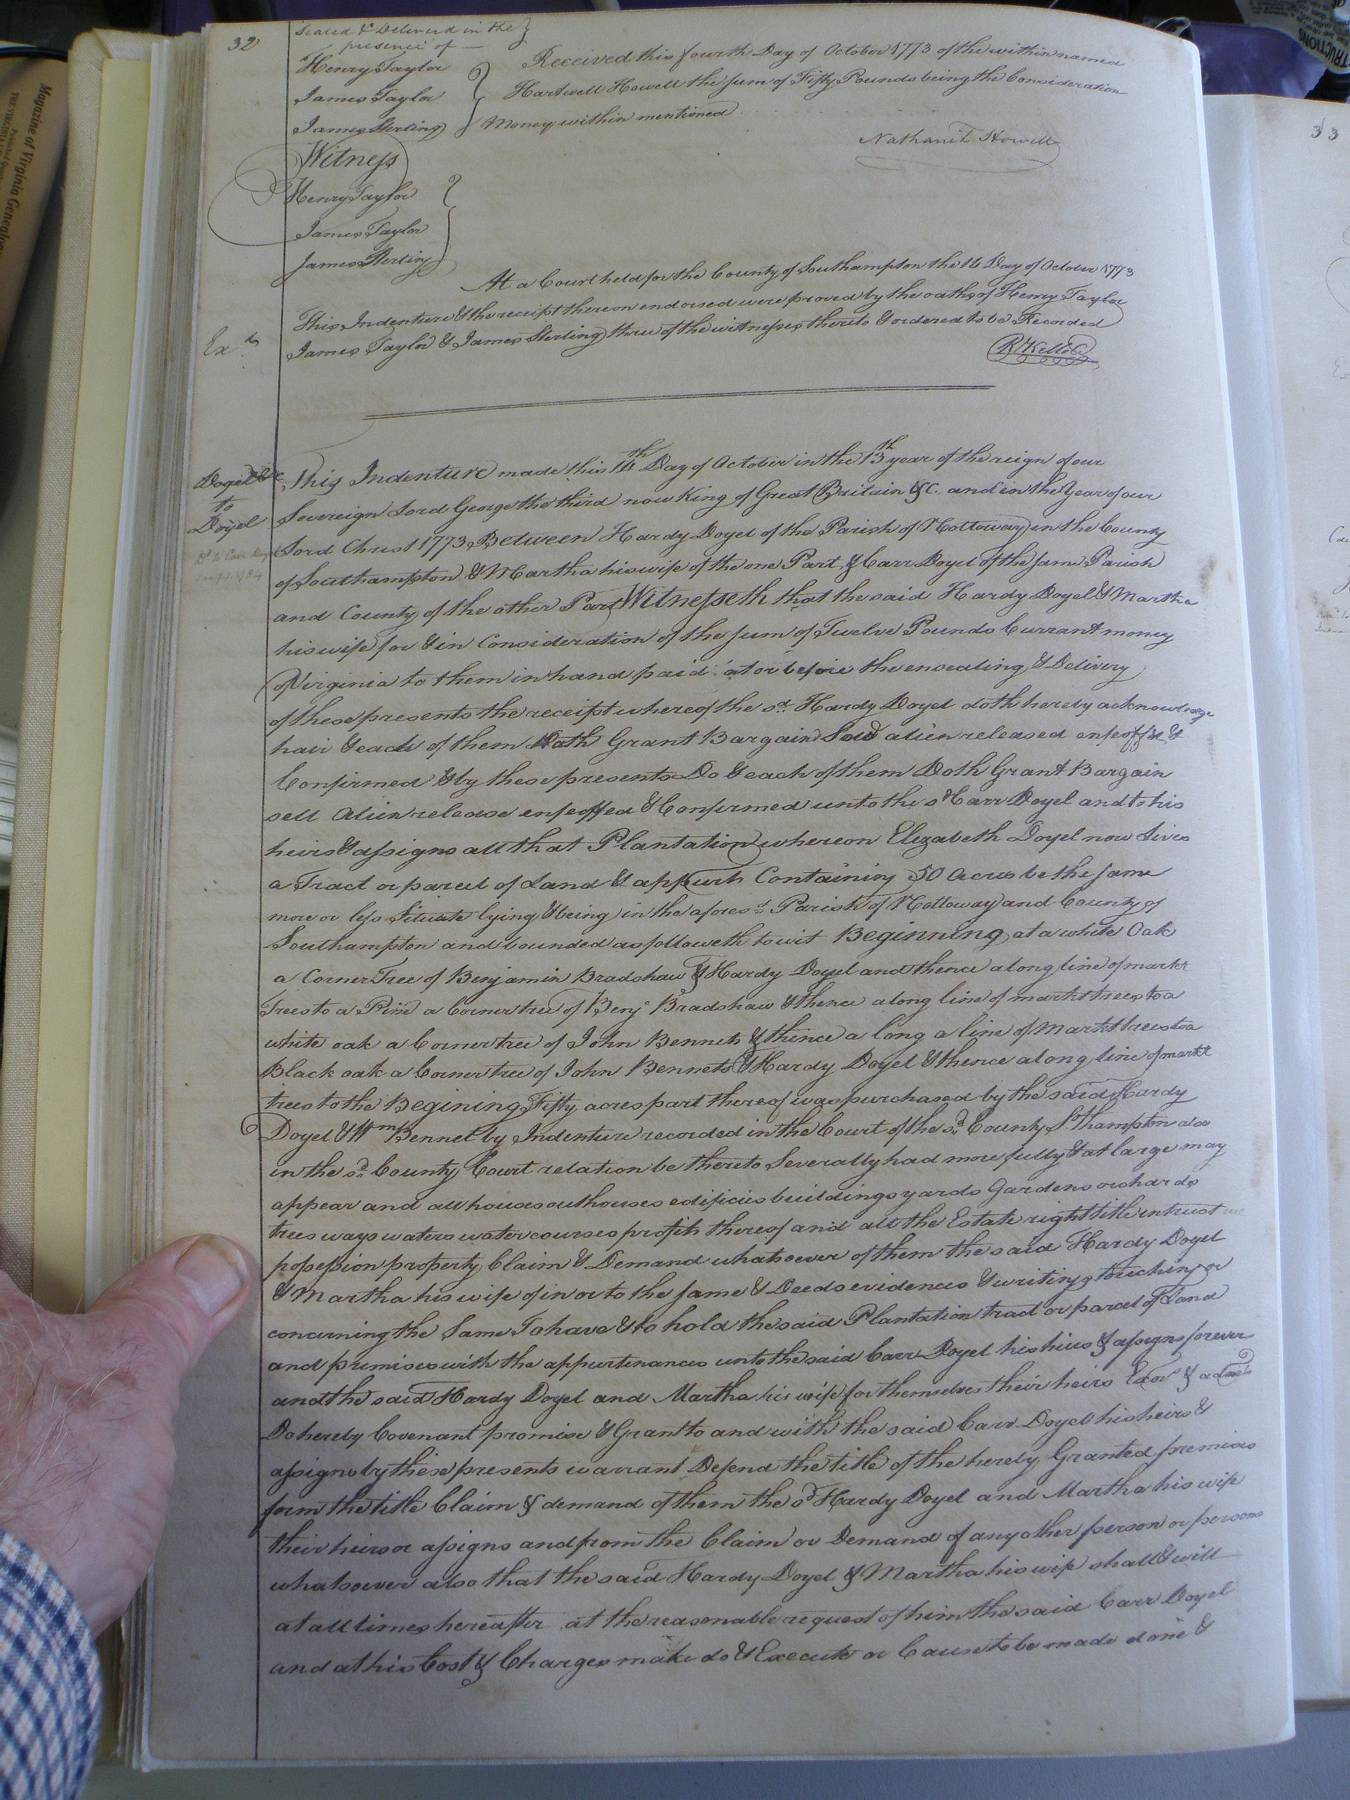 32
Sealed & Delivered in the
presence of —
Henry Taylor
James Taylor
James Sterling
Received this fourth Day of October 1773 of the within named
Hartwell Howell the sum of Fifty Pounds being the Consideration
Money within mentioned
Nathaniel Howell
Witness
Henry Taylor
James Taylor
James Sterling
At a Court held for the County of Southampton the 14 Day of October 1773
This Indenture & the receipt thereon endorsed were proved by the oaths of Henry Taylor
James Taylor & James Sterling three of the witnesses thereto & ordered to be Recorded
Exd
R Kello C
Doyel &c
to
Doyel
This Indenture made this 14th Day of October in the 13th year of the reign of our
Sovereign Lord George the third now King of Great Britain &C. and in the Year of our
Lord Christ 1773 Between Hardy Doyel of the Parish of Nottoway in the County
of Southampton & Martha his wife of the one Part & Carr Doyel of the same Parish
and County of the other Part Witnesseth that the said Hardy Doyel & Martha
his wife for & in Consideration of the sum of Twelve Pounds Currant money
of Virginia to them in hand paid at or before the ensealing & Delivery
of these presents the receipt whereof the sd Hardy Doyel doth hereby acknowledge
hair & each of them Hath Grant Bargain Sold alien released enfeoffed &
Confirmed & by these presents Do & each of them Doth Grant Bargain
sell Alien release enfeoffed & Confirmed unto the sd Carr Doyel and to his
heirs & assigns all that Plantation whereon Elizabeth Doyel now lives
a Tract or parcel of Land & appurts Containing 50 Acres be the same
more or less Situate lying & being in the aforesd Parish of Nottoway and County of
Southampton and bounded as followeth to wit Beginning at a white Oak
a Corner Tree of Benjamin Bradshaw & Hardy Doyel and thence along line of markt
Trees to a Pine a Corner tree of Benjn Bradshaw & thence along line of markt trees to a
white oak a Corner tree of John Bennets & thince a long a line of Markt trees to a
Black oak a Corner tree of John Bennets & Hardy Doyel & thence along line of markt
trees to the Begining Fifty acres part thereof was purchased by the said Hardy
Doyel & Wm Bennet by Indenture recorded in the Court of the sd County S.thampton also
in the sd County Court relation be thereto Severally had more fully & at large may
appear and all houses outhouses edificies buildings yards Gardens orchards
trees ways waters watercourses profits thereof and all the Estate right title intrust
possession property Claim & Demand whatsoever of them the said Hardy Doyel
& Martha his wife of in or to the same & Deeds evidences & writings touching or
concerning the Same To have & to hold the said Plantation tract or parcel of Land
and premises with the appurtenances unto the said Carr Doyel his heirs & assigns forever
and the said Hardy Doyel and Martha his wife for themselves their heirs Exors & admrs
Do hereby Covenant promise & Grant to and with the said Carr Doyel his heirs &
assigns by these presents warrant Defend the title of the hereby Granted premises
form the title Claim & demand of them the sd Hardy Doyel and Martha his wife
their heirs or assigns and from the Claim or Demand of any other person or persons
whatsoever also that the said Hardy Doyel & Martha his wife shall & will
at all times hereafter at the reasonable request of him the said Carr Doyel
and at his Cost & Charges make do & Execute or Cause to be made done &
33
Magazine of Virginia Genealogy